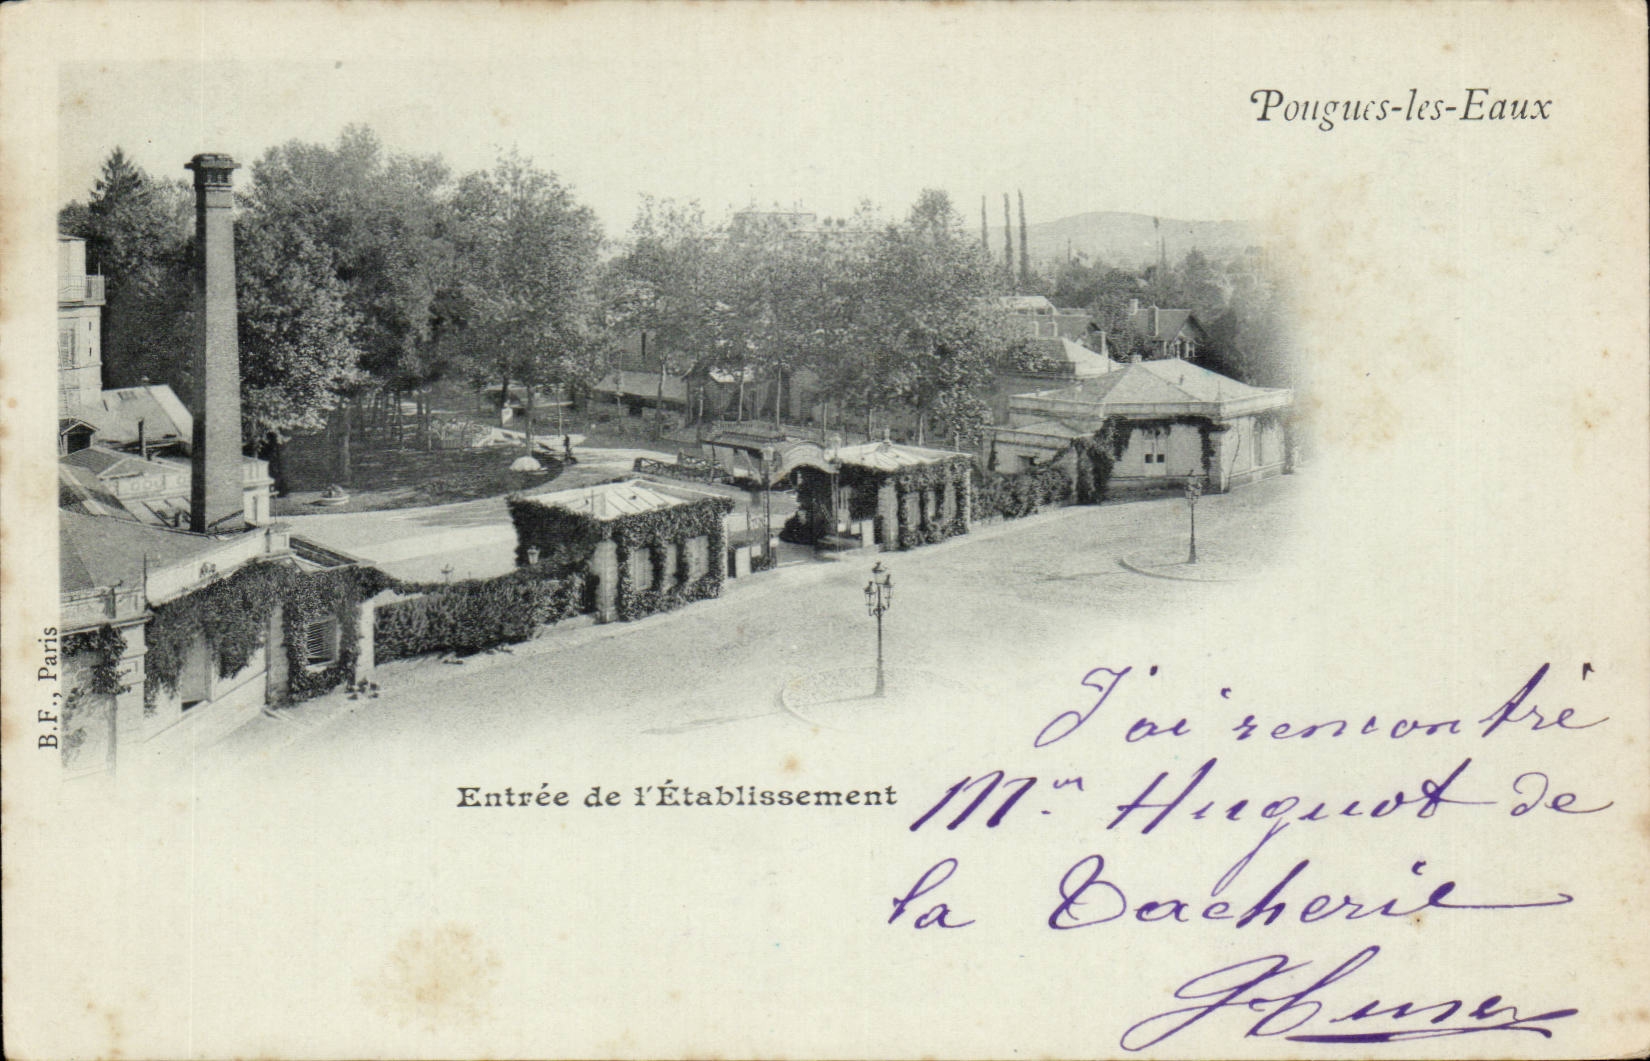 Pougues-les-Eaux
B.F., Paris
Entrée de l'Établissement
J'ai rencontré
Huguot de
la Vacherie